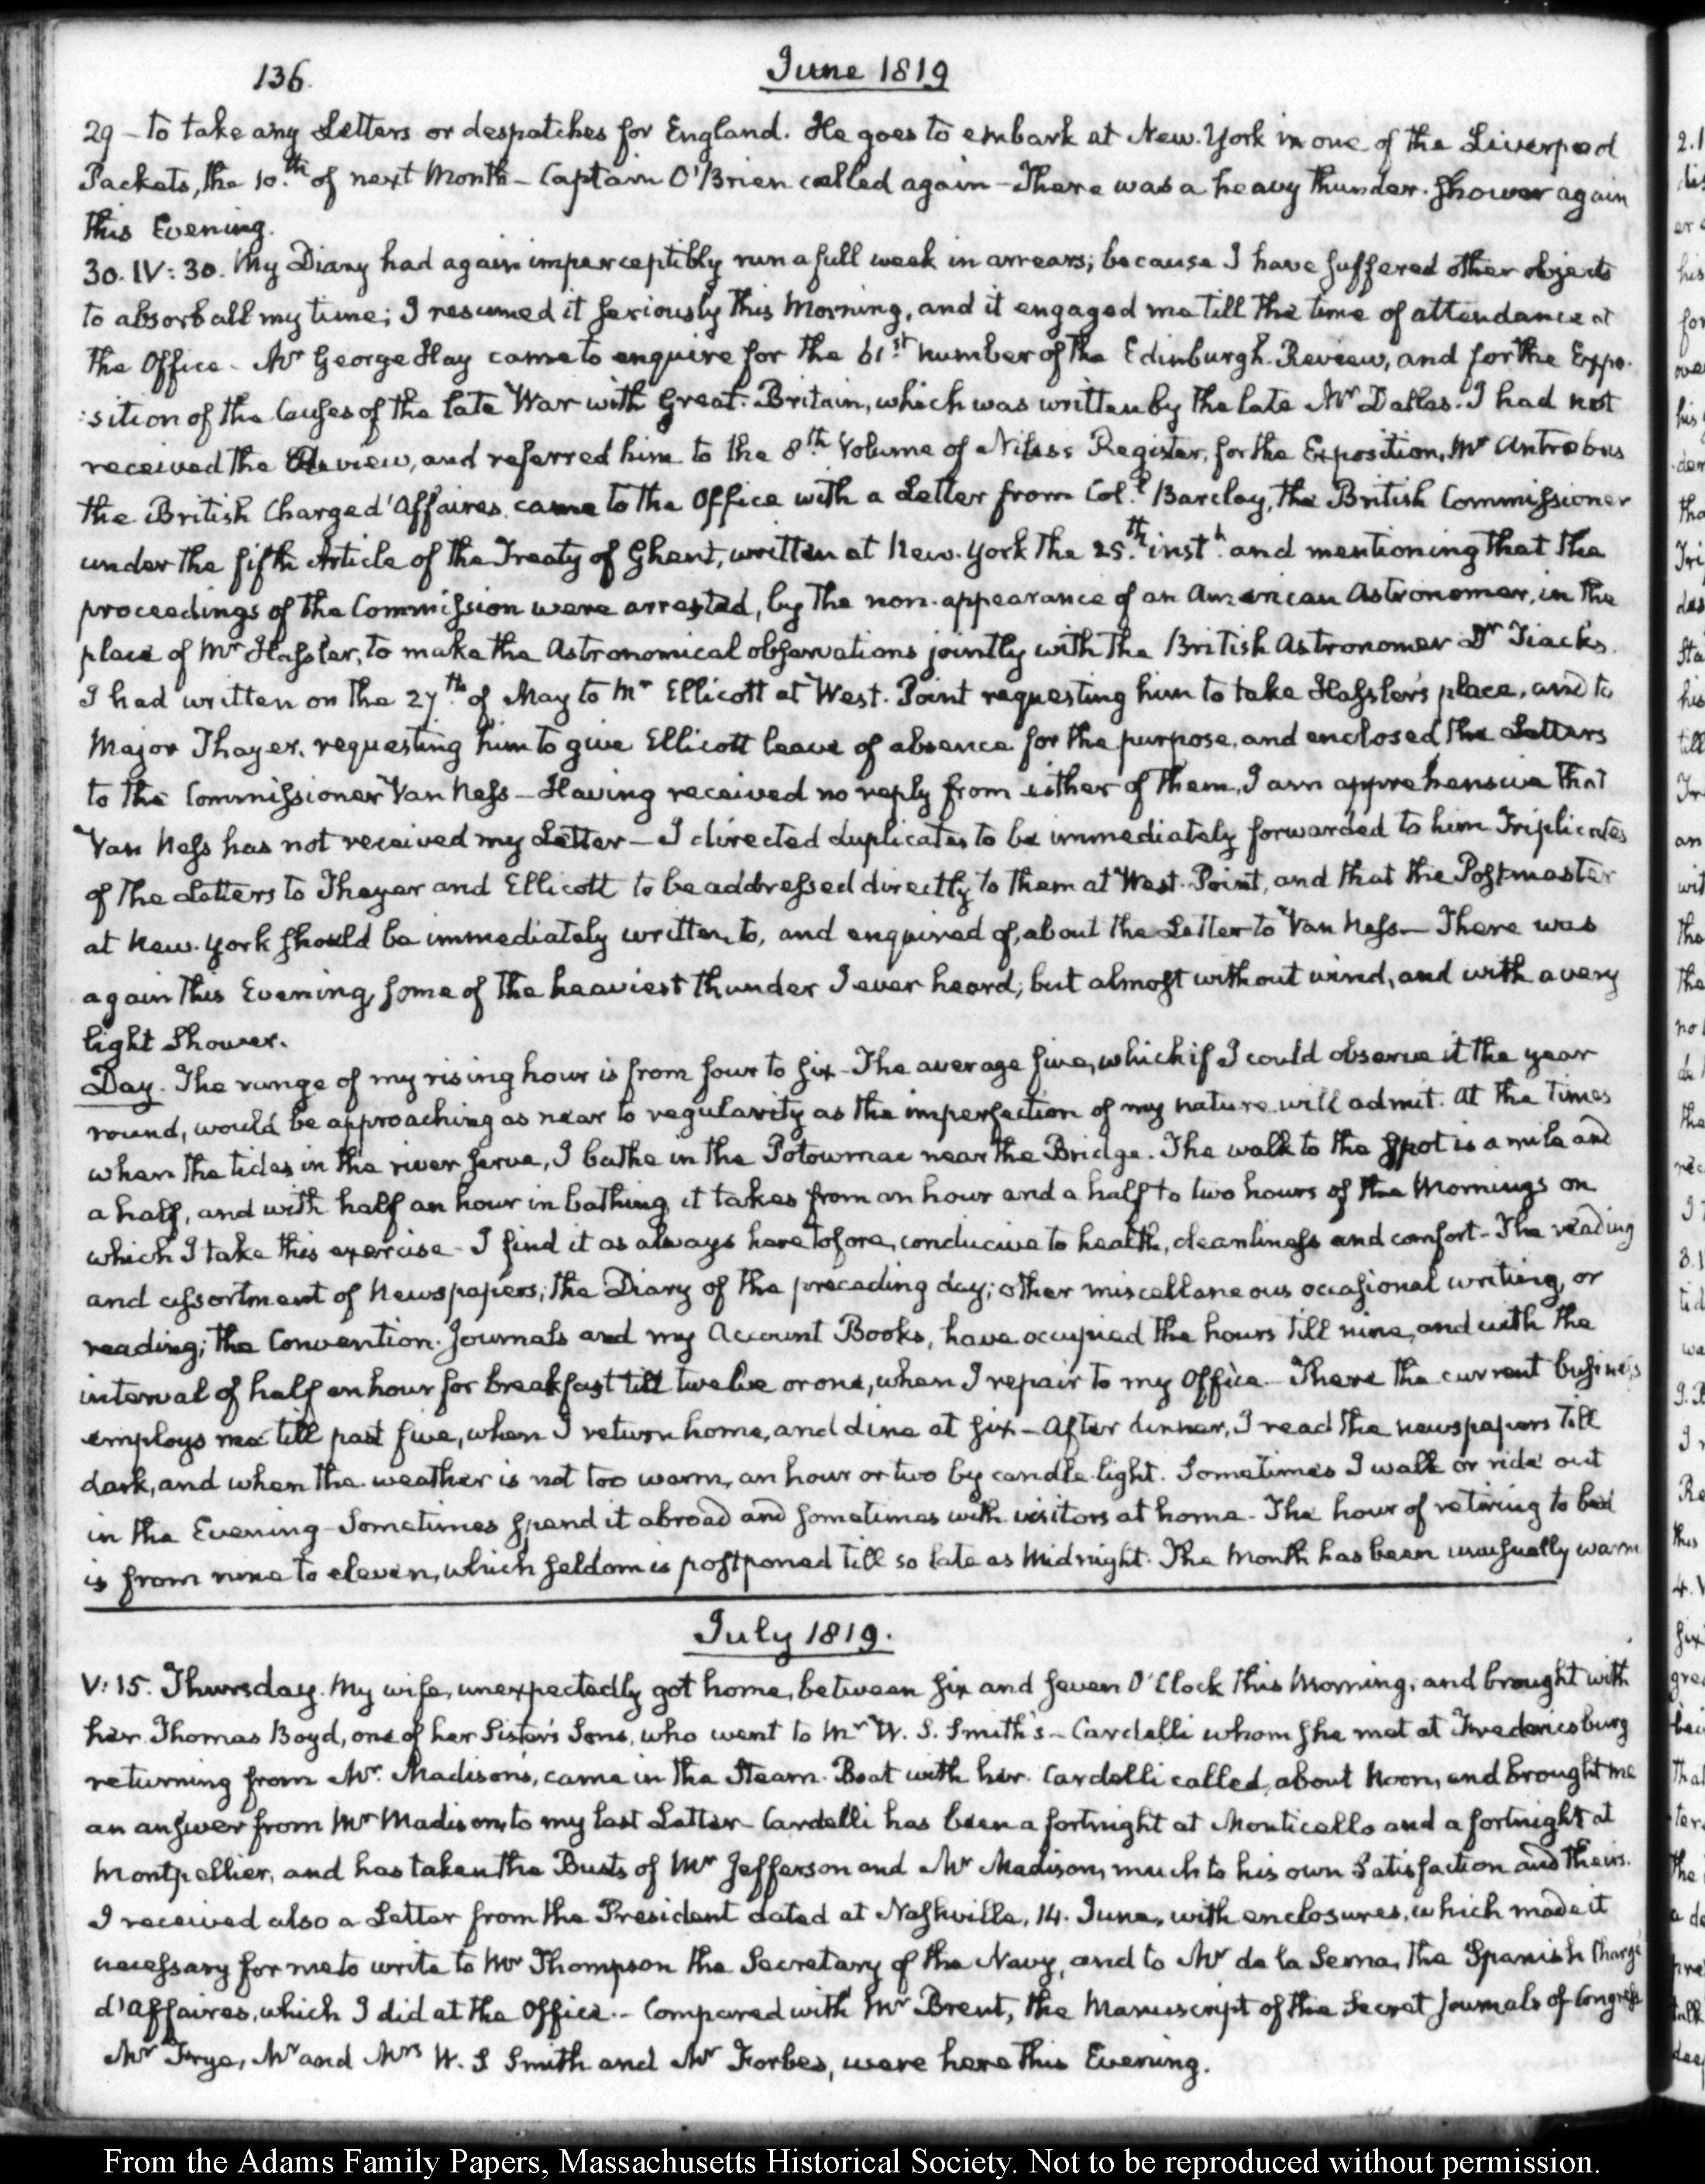 136.
June 1819
29 – to take any Letters or despatches for England. He goes to embark at New-York in one of the Liverpool
Packets, the 10.th of next Month – Captain O'Brien called again – There was a heavy thunder-shower again
this Evening.
30. IV: 30. My Diary had again imperceptibly run a full week in arrears; because I have suffered other objects
to absorb all my time; I resumed it seriously this Morning, and it engaged me till the time of attendance at
the Office – Mr George Hay came to enquire for the 61st number of the Edinburgh Review, and for the Expo-
:sition of the Causes of the late War with Great-Britain, which was written by the late Mr Dallas. I had not
received the Review, and referred him to the 8th Volume of Niles's Register, for the Exposition, Mr Antrobus
the British Chargé d'Affaires came to the Office with a Letter from Col.l Barclay, the British Commissioner
under the fifth Article of the Treaty of Ghent, written at New-York the 25.th inst.t and mentioning that the
proceedings of the Commission were arrested, by the non-appearance of an American Astronomer, in the
place of Mr Hassler, to make the Astronomical observations jointly with the British Astronomer Dr Tiacks.
I had written on the 27.th of May to Mr Ellicott at West-Point requesting him to take Hassler's place, and to
Major Thayer, requesting him to give Ellicott leave of absence for the purpose, and enclosed the Letters
to the Commissioner Van Ness – Having received no reply from either of them, I am apprehensive that
Van Ness has not received my Letter – I directed duplicates to be immediately forwarded to him Triplicates
of the Letters to Thayer and Ellicott to be addressed directly to them at West-Point, and that the Postmaster
at New-York should be immediately written to, and enquired of, about the Letter to Van Ness – There was
again this Evening, some of the heaviest thunder I ever heard; but almost without wind, and with a very
light Shower.
Day. The range of my rising hour is from four to six – The average five, which if I could observe it the year
round, would be approaching as near to regularity as the imperfection of my nature will admit. At the times
when the tides in the river serve, I bathe in the Potowmac near the Bridge. The walk to the spot is a mile and
a half, and with half an hour in bathing, it takes from an hour and a half to two hours of the Mornings on
which I take this exercise – I find it as always heretofore, conducive to health, cleanliness and comfort – The reading
and assortment of Newspapers; the Diary of the preceding day; other miscellaneous occasional writing, or
reading; the Convention-Journals and my Account Books, have occupied the hours till nine, and with the
interval of half an hour for breakfast till twelve or one, when I repair to my Office – There the current business
employs me till past five, when I return home, and dine at six – After dinner, I read the newspapers till
dark, and when the weather is not too warm, an hour or two by candle-light. Sometimes I walk or ride out
in the Evening – Sometimes spend it abroad and sometimes with visitors at home – The hour of retiring to bed
is from nine to eleven, which seldom is postponed till so late as Midnight. The Month has been unusually warm
July 1819.
V: 15. Thursday. My wife, unexpectedly got home, between six and seven O'Clock this Morning; and brought with
her Thomas Boyd, one of her Sister's Sons, who went to Mr W. S. Smith's – Cardelli whom she met at Fredericsburg
returning from Mr. Madison's, came in the Steam-Boat with her. Cardelli called, about Noon, and brought me
an answer from Mr Madison, to my last Letter – Cardelli has been a fortnight at Monticello and a fortnight at
Montpellier, and has taken the Busts of Mr Jefferson and Mr Madison, much to his own Satisfaction and theirs.
I received also a Letter from the President dated at Nashville, 14. June, with enclosures, which made it
necessary for me to write to Mr Thompson the Secretary of the Navy, and to Mr de la Serna, the Spanish Chargé
d'Affaires, which I did at the Office. – Compared with Mr Brent, the Manuscript of the Secret Journals of Congress
Mr Frye, Mr and Mrs W. S Smith and Mr Forbes, were here this Evening.
From the Adams Family Papers, Massachusetts Historical Society. Not to be reproduced without permission.